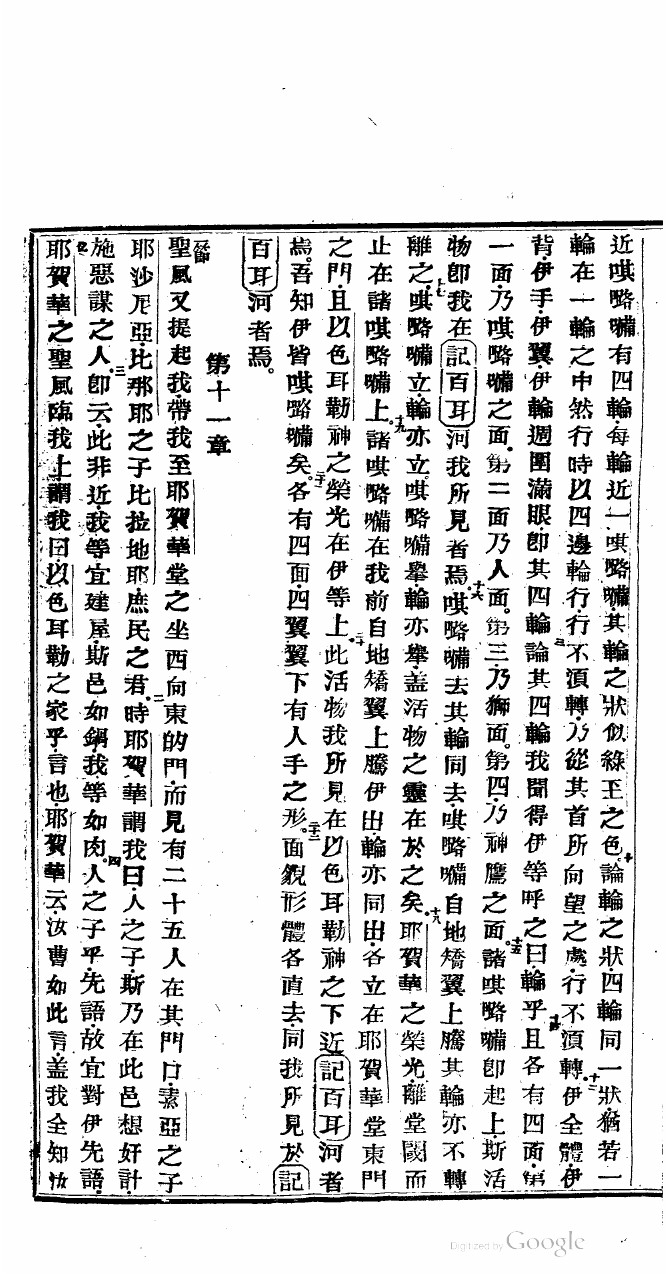 近𠺝㗉㘔有四輪每輪近一𠺝㗉㘔其輪之狀似綠玉之色十論輪之狀四輪同一狀猶若一
輪在一輪之中然行時以四邊輪行行不須轉乃從其首所向望之處行不須轉十二伊全體伊
背伊手伊翼伊輪週圍滿眼卽其四輪論其四輪我聞得伊等呼之曰輪乎十四且各有四面第
一面乃𠺝㗉㘔之面第二面乃人面第三乃獅面第四乃神鷹之面十五諸𠺝㗉㘔卽起上斯活
物卽我在記百耳河我所見者焉十六𠺝㗉㘔去其輪同去𠺝㗉㘔自地矯翼上騰其輪亦不轉
離之十七𠺝㗉㘔立輪亦立𠺝㗉㘔舉輪亦舉盖活物之靈在於之矣十八耶賀華之榮光離堂閾而
止在諸𠺝㗉㘔上十九諸𠺝㗉㘔在我前自地矯翼上騰伊出輪亦同出各立在耶賀華堂東門
之門且以色耳勒神之榮光在伊等上二十此活物我所見在以色耳勒神之下近記百耳河者
焉吾知伊皆𠺝㗉㘔矣二十一各有四面四翼翼下有人手之形二十二面貌形體各直去同我所見於記
百耳河者焉
第十一章
一節聖風又提起我帶我至耶賀華堂之坐西向東的門而見有二十五人在其門口素亞之子
耶沙尼亞比那耶之子比拉地耶庶民之君二時耶賀華謂我曰人之子斯乃在此邑想奸計
施惡謀之人三卽云此非近我等宜建屋斯邑如鍋我等如肉四人之子乎先語故宜對伊先語
五耶賀華之聖風臨我上謂我曰以色耳勒之家乎言也耶賀華云汝曹如此言盖我全知汝
Digitized by Google